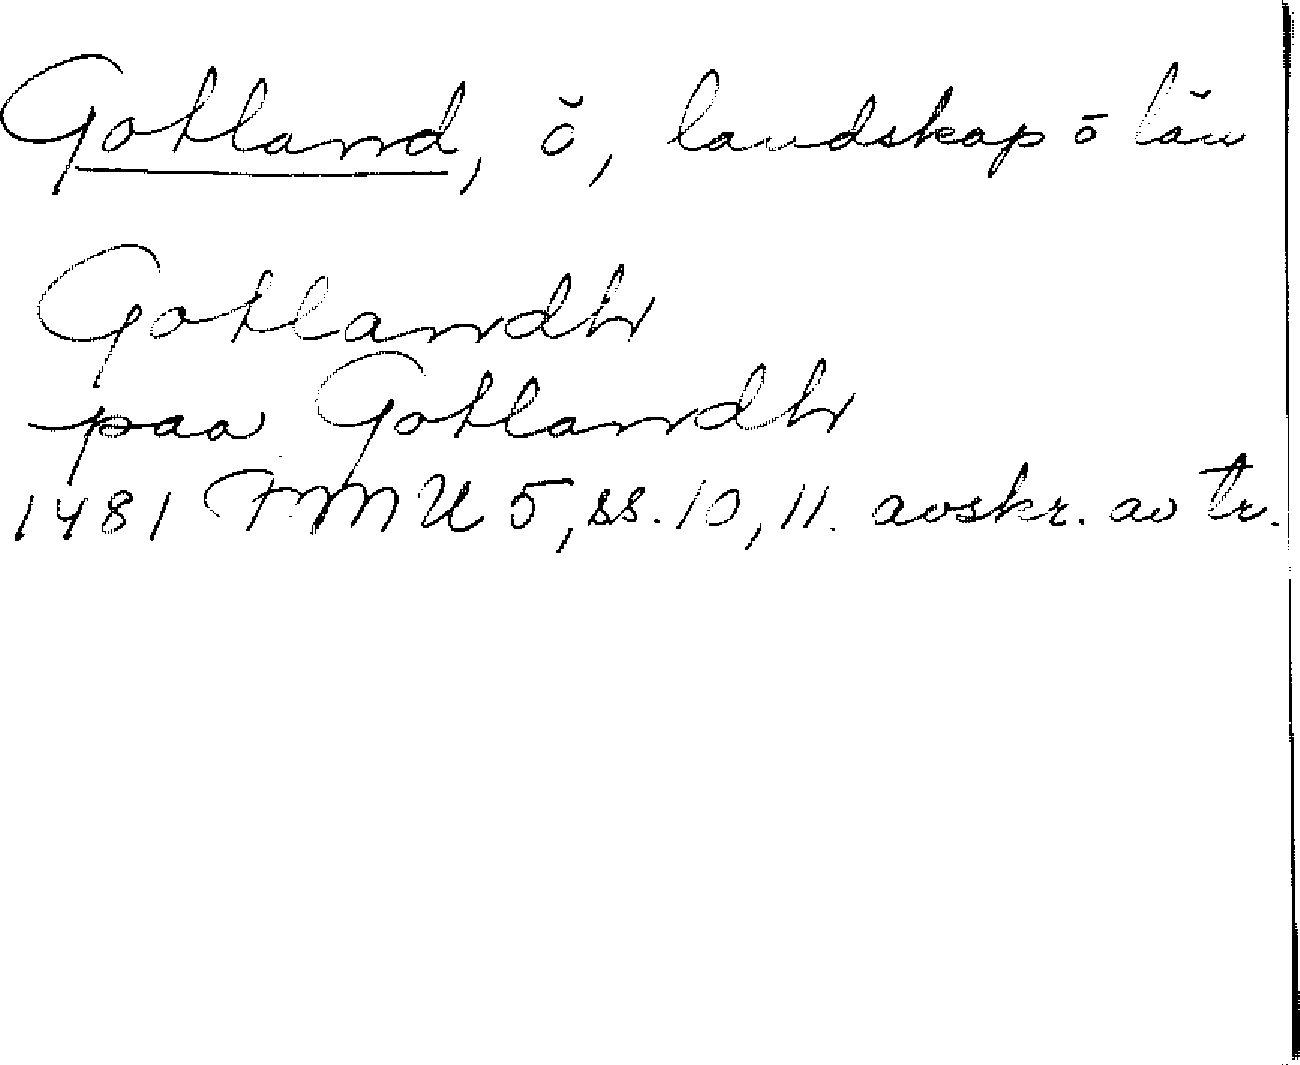 Gotland, ö, landskap ō län
Gotlandh
paa Gotlandh
1481 FMU 5, ss. 10, 11. avskr. av tr.